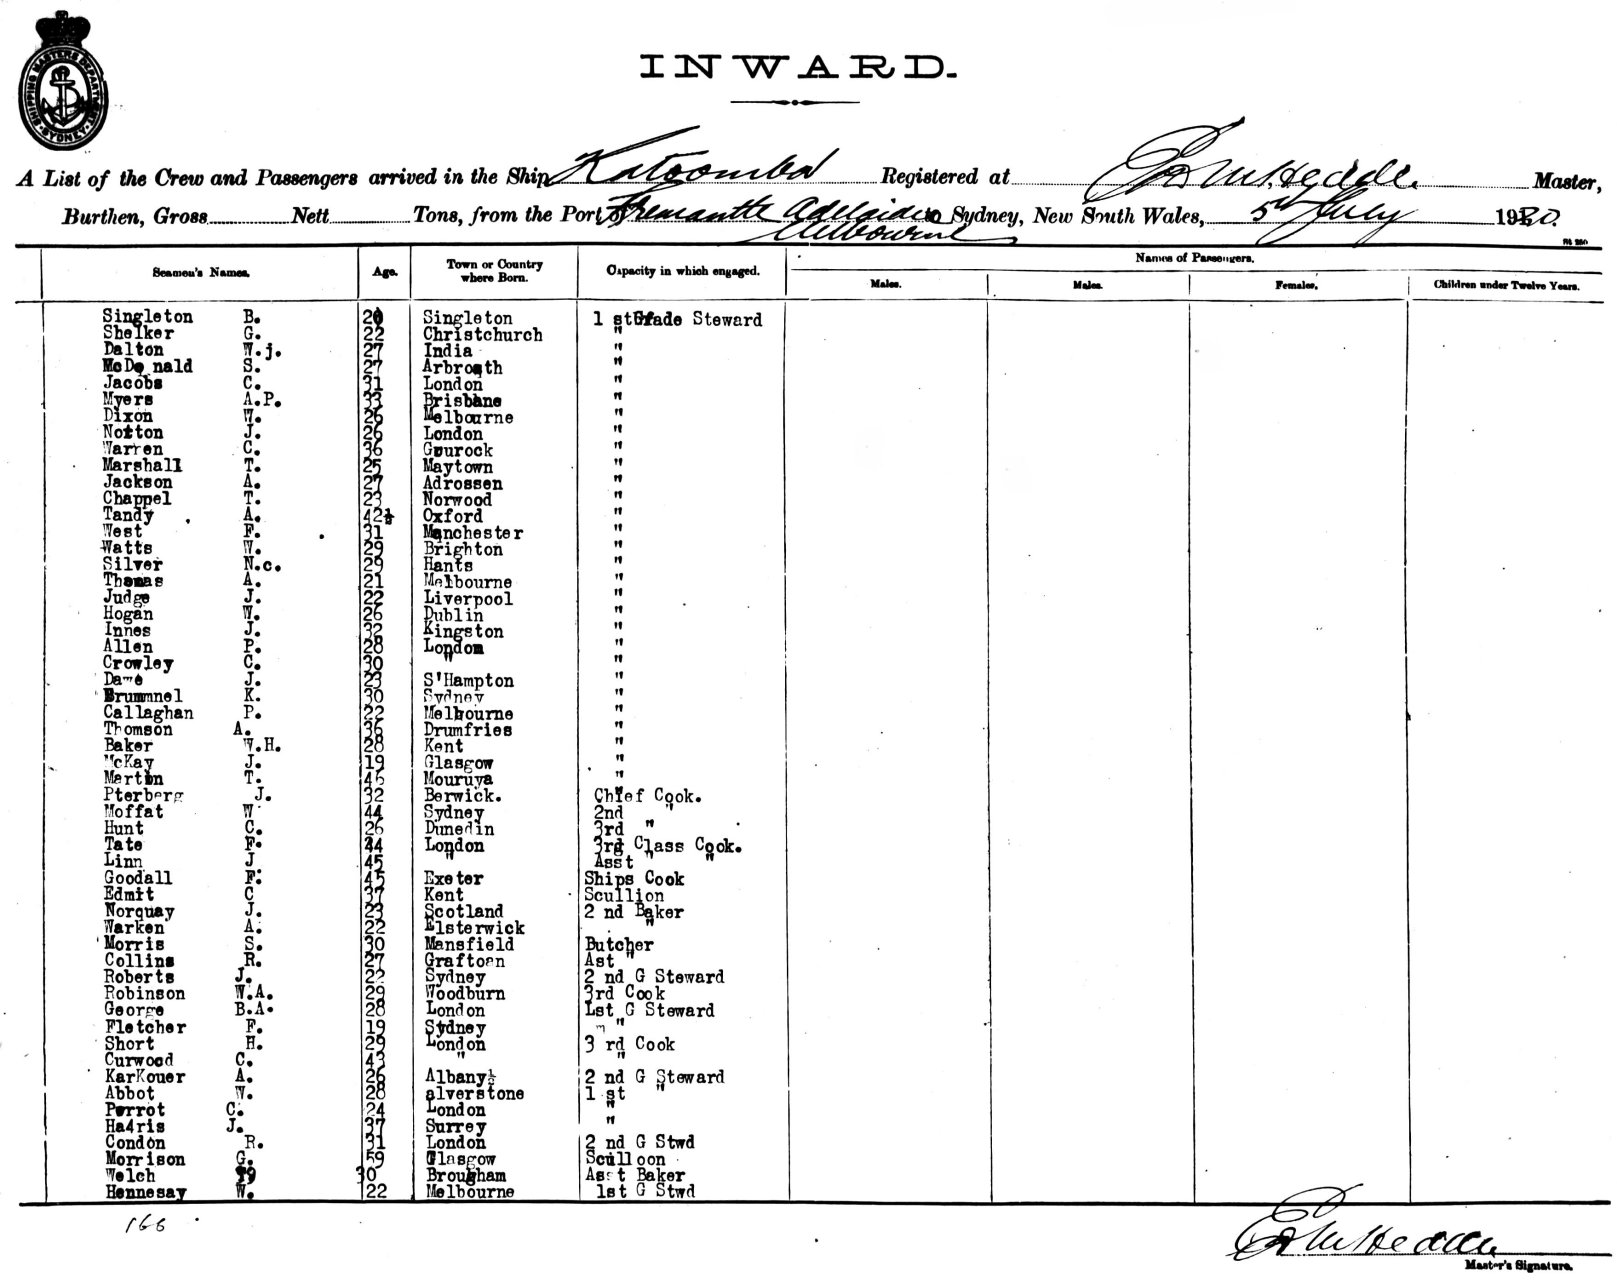 SHIPPING MASTERS DEPARTMENT
SYDNEY
INWARD.
A List of the Crew and Passengers arrived in the Ship Katoomba Registered at Master,
Burthen, Gross Nett Tons, from the Port of Fremantle Adelaide Sydney, New South Wales, 5th July 1920.
Melbourne
Seamen's Names. Age. Town or Country where Born. Capacity in which engaged. Names of Passengers.
Males. Males. Females. Children under Twelve Years.
Singleton B. 20 Singleton 1 st Grade Steward
Shelker G. 22 Christchurch "
Dalton W.j. 27 India "
McDonald S. 27 Arbroath "
Jacobs C. 31 London "
Myers A.P. 33 Brisbane "
Dixon W. 26 Melbourne "
Notton J. 26 London "
Warren C. 36 Gourock "
Marshall T. 25 Maytown "
Jackson A. 27 Adrossen "
Chappel T. 23 Norwood "
Tandy A. 42½ Oxford "
West F. 31 Manchester "
Watts W. 29 Brighton "
Silver N.c. 29 Hants "
Thomas A. 21 Melbourne "
Judge J. 22 Liverpool "
Hogan W. 26 Dublin "
Innes J. 32 Kingston "
Allen P. 28 London "
Crowley C. 30 " "
J. 23 S'Hampton "
Brummnel K. 30 Sydney "
Callaghan P. 22 Melbourne "
Thomson A. 36 Drumfries "
Baker W.H. 28 Kent "
McKay J. 19 Glasgow "
Martin T. 45 Mouruya "
Pterberg J. 32 Berwick. Chief Cook.
Moffat W 44 Sydney 2nd "
Hunt C. 26 Dunedin 3rd "
Tate F. 44 London 3rd Class Cook.
Linn J 45 " Asst " "
Goodall F. 45 Exeter Ships Cook
Edmit C 37 Kent Scullion
Norquay J. 23 Scotland 2 nd Baker
Warken A. 22 Elsterwick "
Morris S. 30 Mansfield Butcher
Collins R. 27 Graftoen Ast "
Roberts J. 22 Sydney 2 nd G Steward
Robinson W.A. 29 Woodburn 3rd Cook
George B.A. 28 London 1st G Steward
Fletcher F. 19 Sydney " "
Short H. 29 London 3 rd Cook
Curwood C. 43 " "
KarKouer A. 26 Albany½ 2 nd G Steward
Abbot W. 28 alverstone 1 st "
Perrot C. 24 London "
Ha4ris J. 37 Surrey "
Condon R. 31 London 2 nd G Stwd
Morrison G. 59 Glasgow Sculloon
Welch 30 Brougham Asst Baker
Hennesay W. 22 Melbourne 1st G Stwd
166
Master's Signature.